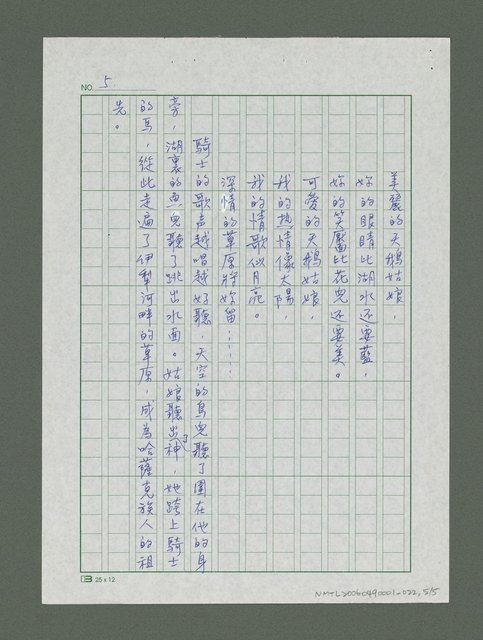 NO. 5.
美麗的天鵝姑娘，
妳的眼睛比湖水还要藍，
妳的笑靨比花兒还要美。
可愛的天鵝姑娘，
我的熱情像太陽，
我的情歌似月亮。
深情的草原將妳留……
騎士的歌声越唱越好聽，天空的鳥兒聽了圍在他的身
旁，湖裏的魚兒聽了跳出水面。姑娘聽出了神，她跨上騎士
的馬，從此走遍了伊犁河畔的草原，成為哈薩克族人的祖
先。
25 x 12
NMTL20060490001-022, 5/5